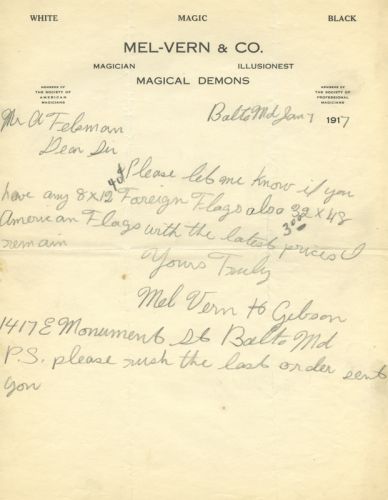 WHITE MAGIC BLACK
MEL-VERN & CO.
MAGICIAN ILLUSIONEST
MAGICAL DEMONS
MEMBERS OF
THE SOCIETY OF
AMERICAN
MAGICIANS
MEMBERS OF
THE SOCIETY OF
PROFESSIONAL
MAGICIANS
Balto Md Jan 7 1917
Mr A Felsman
Dear Sir
Please let me know if you
have any 8x12 Foreign Flags also 32x48
American Flags with the latest prices I
remain
Yours Truly
Mel Vern H Gibson
1417 E Monument St Balto Md
P.S. please rush the last order sent
you